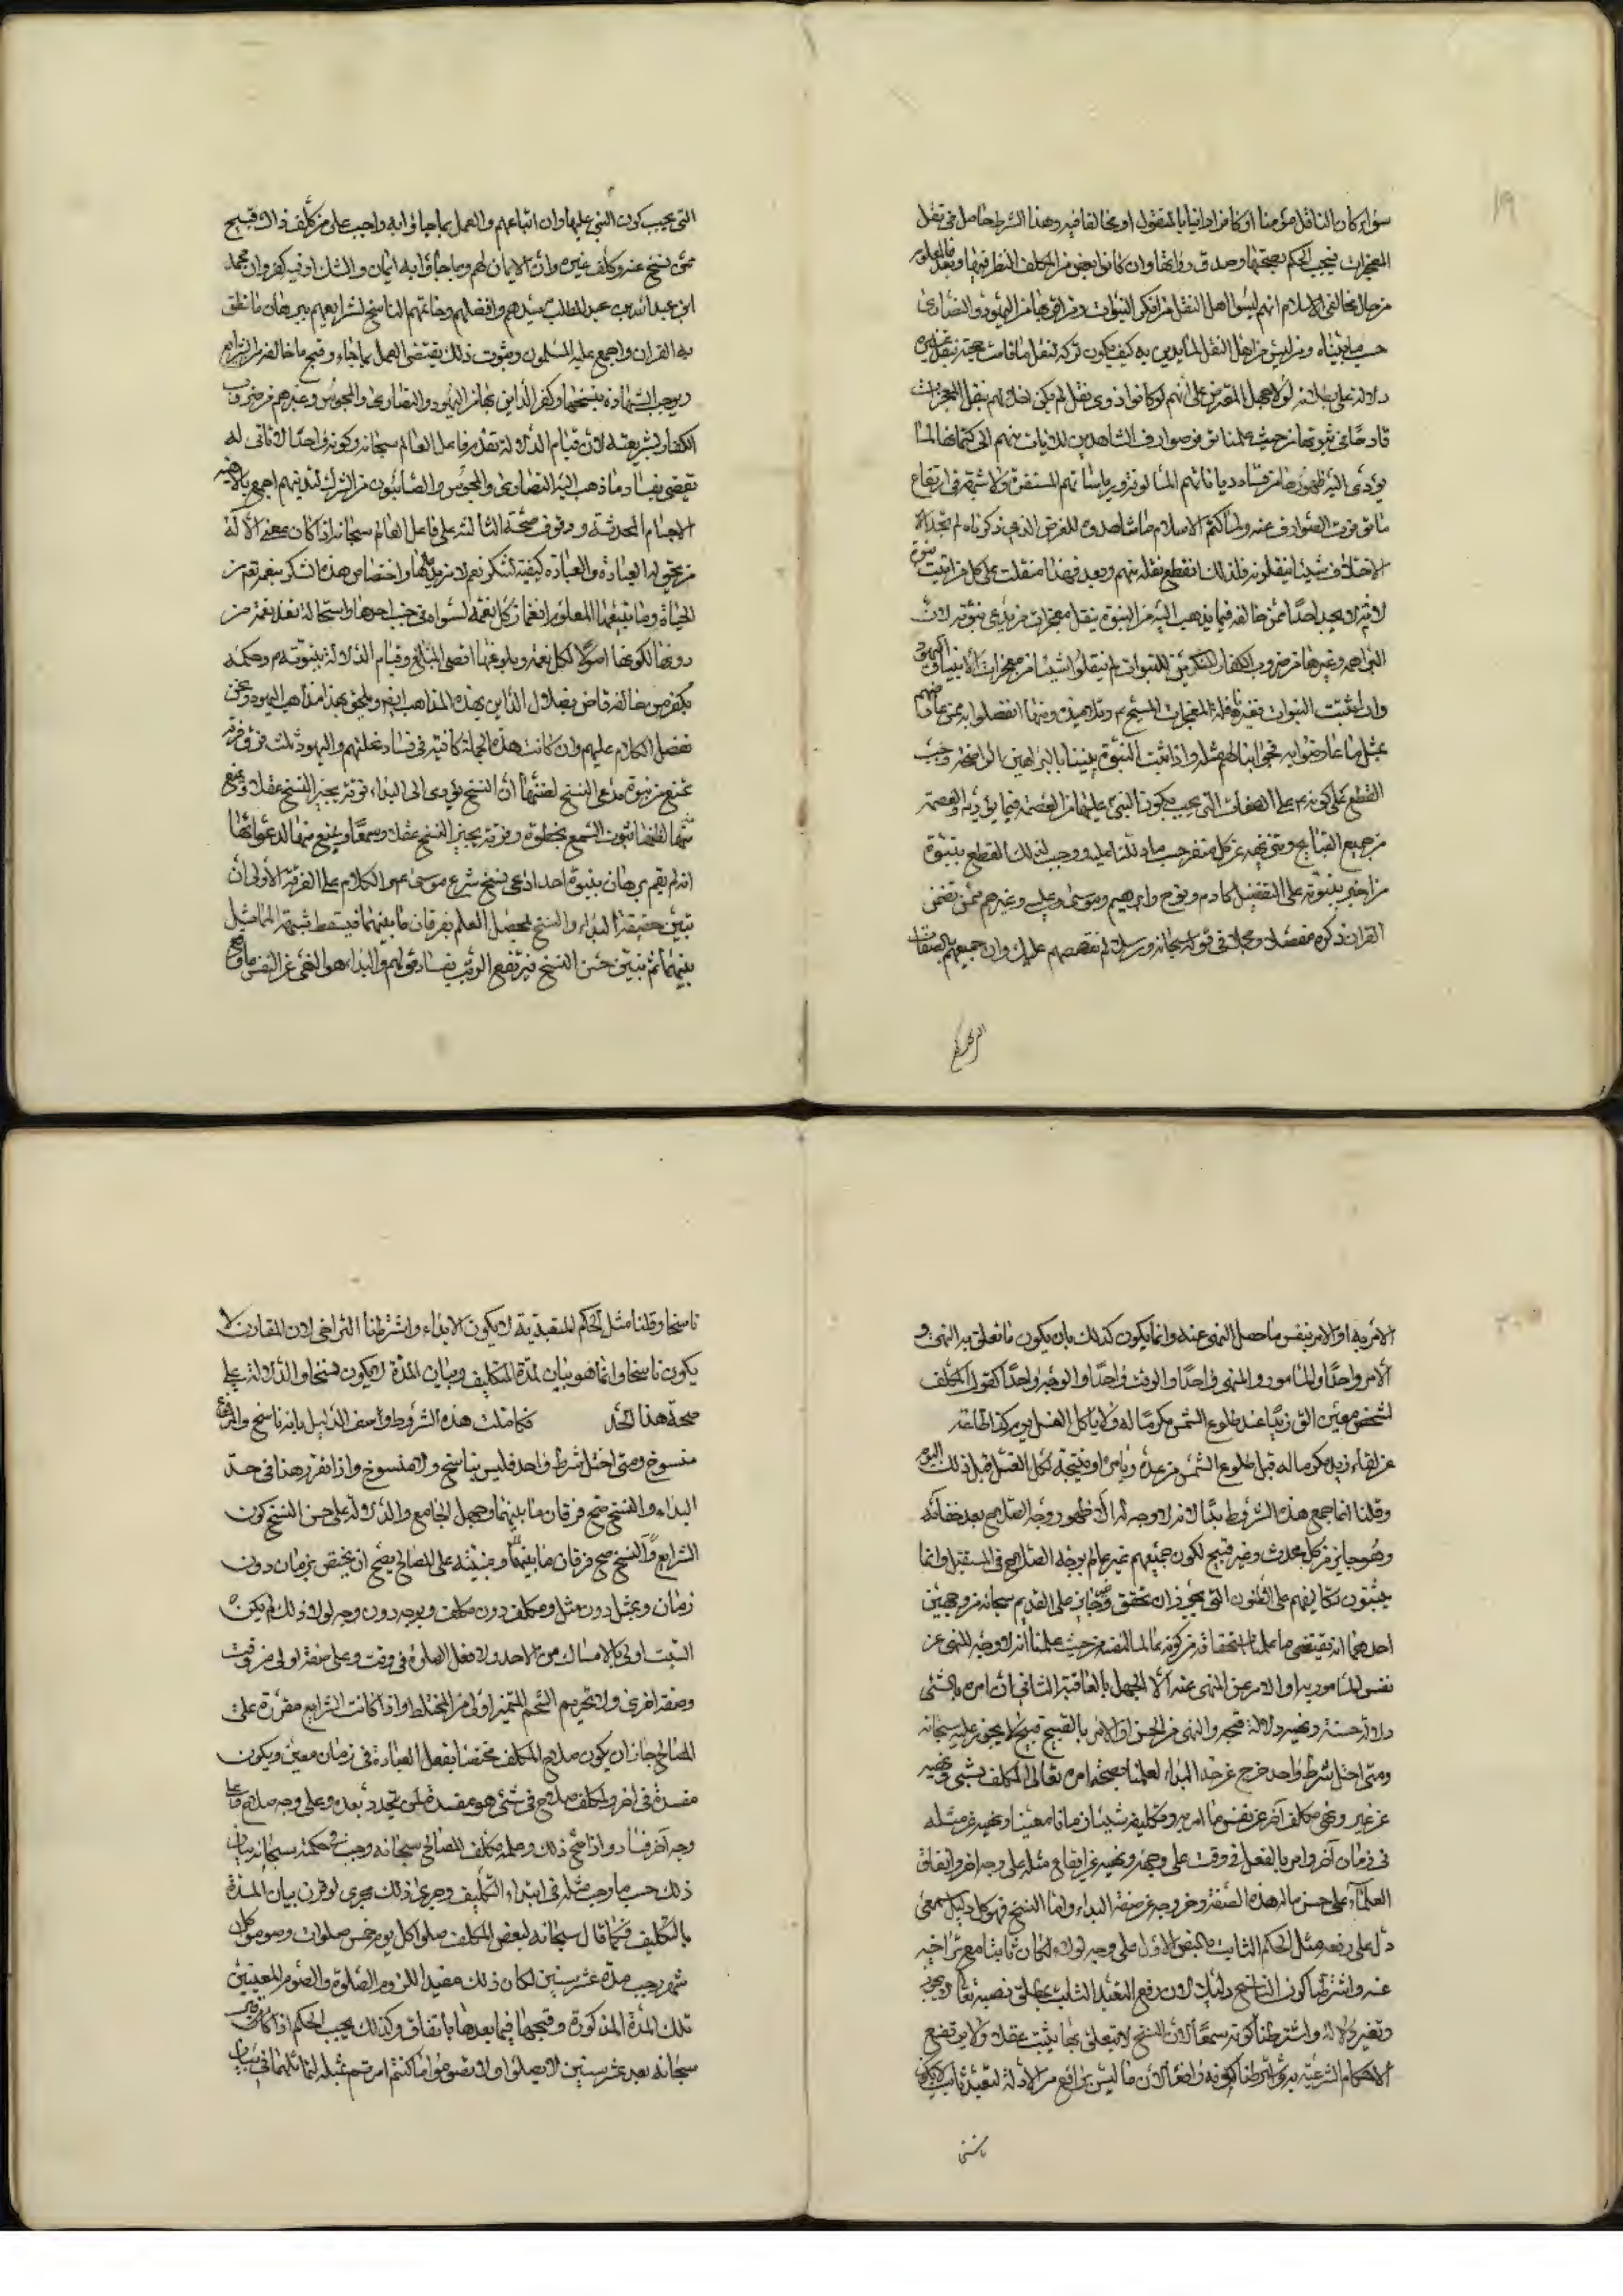 ١٩
سواء كان الناقل مؤمنا او كافرا دائنا بالمنقول او مخالفا فيه وهذا الشرط حاصل في نقل
المعجزات فيجب الحكم بصحتها وصدق رواتها وان كانوا بعض من المكلف النظر فيها وبعد فالمعلوم
من حال مخالفي الاسلام انهم ليسوا اهل النقل من منكري النبوات ومن اقر بها من اليهود والنصارى
حسب ما بيناه ومن ليس من اهل النقل المتدين به كيف يكون تركه لنقل ما قامت حجته بنقل غيره
دلالة على بطلانه لولا جهل المعترض على انهم لو كانوا ذوي نقل لم يكن اخلالهم بنقل المعجزات
قادحا في ثبوتها من حيث علمنا توفر صوارف الشاهدين للايات منهم الى كتمانها لما
يؤدي اليه ظهورها من فساد دياناتهم المألوفة ورياساتهم المستقرة ولا شبهة في ارتفاع
ما توفرت الصوارف عنه ولما كتم الاسلاف ما شاهدوه للغرض الذي ذكرناه لم تجد
الاخلاف شيئا ينقلونه فلذلك انقطع نقله منهم وبعد فهذا منقلب على كل من اثبت نبوة
لانه لا يجد احدا ممن خالفه فيما يذهب اليه من النبوة ينقل معجزات من يدعي نبوته لان
البراهمة وغيرها من ضروب الكفار المنكرين للنبوات لم ينقلوا شيئا من معجزات الانبياء واليهود
وان اثبتت النبوات فغير ناقلة لمعجزات المسيح ع وتلاميذه ومهما انفصلوا به ممن عارضهم
بمثل ما عارضوا به فجوابنا لهم مثله واذا ثبتت النبوة نبينا بالبراهين الواضحة وجب
القطع على كونه ع على الصفات التي يجب كون النبي عليها من العصمة فيما يؤديه والعصمة
من جميع القبايح وتنزيهه عن كل منفر حسب ما دللنا عليه ووجب لذلك القطع بنبوة
من اخبر بنبوته على التفصيل كآدم ونوح وابراهيم وموسى وعيسى وغيرهم ممن تضمن
القران ذكره مفصلا ومجملا في قوله سبحانه ورسلا لم نقصصهم عليك وان جميعهم بالصفات
التي يجب كون النبي عليها وان اتباعهم والعمل بما جاؤا به واجب على من كلف ذلك قبيح
ممن نسخ عنه وكلف غيره وان الايمان لهم وبما جاؤا به ايمان والشك او فيه كفر وان محمد
ابن عبد الله بن عبد المطلب سيدهم وافضلهم وخاتمهم الناسخ لشرايعهم ببرهان ما نطق
به القران واجمع عليه المسلمون وثبوت ذلك يقتضي العمل بما جاء به وقبح ما خالفه من الشرايع
ويوجب الشهادة بنسخها وكفر الدائن بها من اليهود والنصارى والمجوس وغيرهم من ضروب
الكفار بشريعته لان قيام الدلالة بقدم فاعل العالم سبحانه وكونه واحدا لا ثاني له
تقضي بفساد ما ذهب اليه النصارى والمجوس والصابئون من الشرك لتدينهم اجمع بالاهية
الاجسام المحدثة ووقوف صحة التأله على فاعل العالم سبحانه اذ كان معنى الاله
من يحق له العبادة والعبادة كيفية لشكر نعم لا مزيد عليها واختصاص هذه الشكر بنعم تميز
الحياة وما يتبعها المعلوم انغمار كل نعمة لسواه في جنب احدها واستحالة نعمة من
دونها لكونها اصولا لكل نعمة وبلوغها اقصى المبالغ وقيام الدلالة بنبوته ص وحكمه
بكفر من خالفه قاض بضلال الدائن بهذه المذاهب ايضا ويلحق بهذا مذاهب اليهود ونحن
نفصل الكلام عليهم وان كانت هذه الجملة كافية في فساد نحلتهم واليهود ثلث فرق فرقة
تمنع من نبوة مدعي النسخ لظنها ان النسخ يؤدي الى البداء وفرقة يجيز النسخ عقلا وتمنع
منها لظنها ثبوت السمع بحظره وفرقة يجيز النسخ عقلا وسمعا ويمنع منها لدعوائها
انه لم يقم برهان بنبوة احد ادعى نسخ شرع موسى ع والكلام على الفرقة الاولى ان
نبين حقيقة البداء والنسخ ليحصل العلم بفرقان ما بينهما فيسقط شبهة المماثل
بينهما ثم نبين حسن النسخ فيرتفع الريب بفساد قولهم والبداء هو النهي عن نفس ما وقع
الامر به او الامر بنفس ما حصل النهي عنه وانما يكون كذلك بان يكون ما تعلق به النهي و
الامر واحدا والمأمور والمنهي واحدا والوقت واحدا والوجه واحدا كقول المكلف
لشخص معين الق زيدا عند طلوع الشمس مكرما له ولا يأكل العسل من يد كذا ثم نهاه
عن لقاء زيد مكرما له قبل طلوع الشمس من غده ويأمره او يبيحه لاكل العسل قبل ذلك اليوم
وقلنا انما جمع هذه الشروط بداء لانه لا وجه له الا ظهور وجه الصلاح بعد خفائه
وهو جايز من كل محدث وغير قبيح لكون جميعهم غير عالم بوجه الصلاح في المستقبل وانما
يبنون تكاليفهم على الظنون التي يجوز ان تحقق وغير جايز على القديم سبحانه من وجهين
احدهما انه يقتضي ما علمنا استحقاقه من كونه عالما لنفسه من حيث علمنا انه لا وجه للنهي عن
نفس المأمور به او الامر عن المنهي عنه الا الجهل بالعاقبة الثاني ان امره بالشئ
دلالة حسنه ونهيه دلالة قبحه والنهي عن الحسن او الامر بالقبيح قبيح لا يجوز عليه سبحانه
ومتى اختل شرط واحد خرج عن حد البداء لعلمنا بصحة امره تعالى المكلف بشئ ونهيه
عن غيره ونهي مكلف آخر عن نفس ما امر به وتكليفه شيئا زمانا معينا ونهيه عن مثله
في زمان آخر وامره بالفعل في وقت على وجه ونهيه عن ايقاع مثله على وجه اخر واتفاق
العلماء على حسن ماله هذه الصفة وخروجه عن صفة البداء واما النسخ فهو كل دليل سمعي
دل على رفع مثل الحكم الثابت بالنص الاول على وجه لولاه لكان ثابتا مع تراخيه
عنه واشترطنا كون الناسخ دليلا لان رفع التعبد الثابت يتعلق بنصبه تعالى
وتغير دلالة واشترطنا كونه سمعيا لان النسخ لا يتعلق بما يثبت عقلا ولا يرتفع
الاحكام الشرعية به واشترطنا كونه رافعا لان ما ليس برافع من الادلة لتعبد ثابت لا يكون
ناسخا وقلنا مثل الحكم المتعبد به لا يكون الابداء واشترطنا التراخي لان المقارن لا
يكون ناسخا وانما هو بيان لمدة التكليف وبيان المدة لا يكون نسخا والدلالة على
صحة هذا الحد تكاملت هذه الشروط واصف الدليل بانه ناسخ والمرفوع
منسوخ ومتى اختل شرط واحد فليس بناسخ ولا منسوخ واذا تقرر هذا في حد
البداء والنسخ صح فرقان ما بينهما وجهل الجامع والدلالة على حسن النسخ كون
الشرايع والنسخ صح فرقان ما بينهما ومبنية على المصالح يصح ان يختص بزمان دون
زمان وبمثل دون مثل ومكلف دون مكلف وبوجه دون وجه لولا ذلك لم يكن
السبت اولى بالامساك من الاحد ولا فعل الصلوة في وقت وعلى صفة اولى من وقت
وصفة اخرى ولا تحريم الشحم المتميز اولى من المختلط واذا كانت الشرايع مقررة على
المصالح جاز ان يكون صلاح المكلف مختصا بفعل العبادة في زمان معين ويكون
مفسدة في اخر ولمكلف صلاح في شئ هو مفسدة لمن تجدد بعده وعلى وجه صلاح وعلى
وجه آخر فساد واذا صح ذلك وعلمه مكلف المصالح سبحانه وجب في حكمته سبحانه بيان
ذلك حسب ما وجب مثله في ابتداء التكليف وجرى ذلك مجرى لو قرن بيان المدة
بالتكليف فكما قال سبحانه لبعض المكلف صلوا كل يوم خمس صلوات وصوموا كل
شهر رجب مدة عشر سنين لكان ذلك مفيدا للزوم الصلوة والصوم المعينين
تلك المدة المذكورة وقبحها فيما بعدها باتفاق وكذلك يجب الحكم اذا قال
سبحانه بعد عشر سنين لا يصلوا ولا تصوموا ما كنتم امرتم بمثله لتماثلهما في بيان